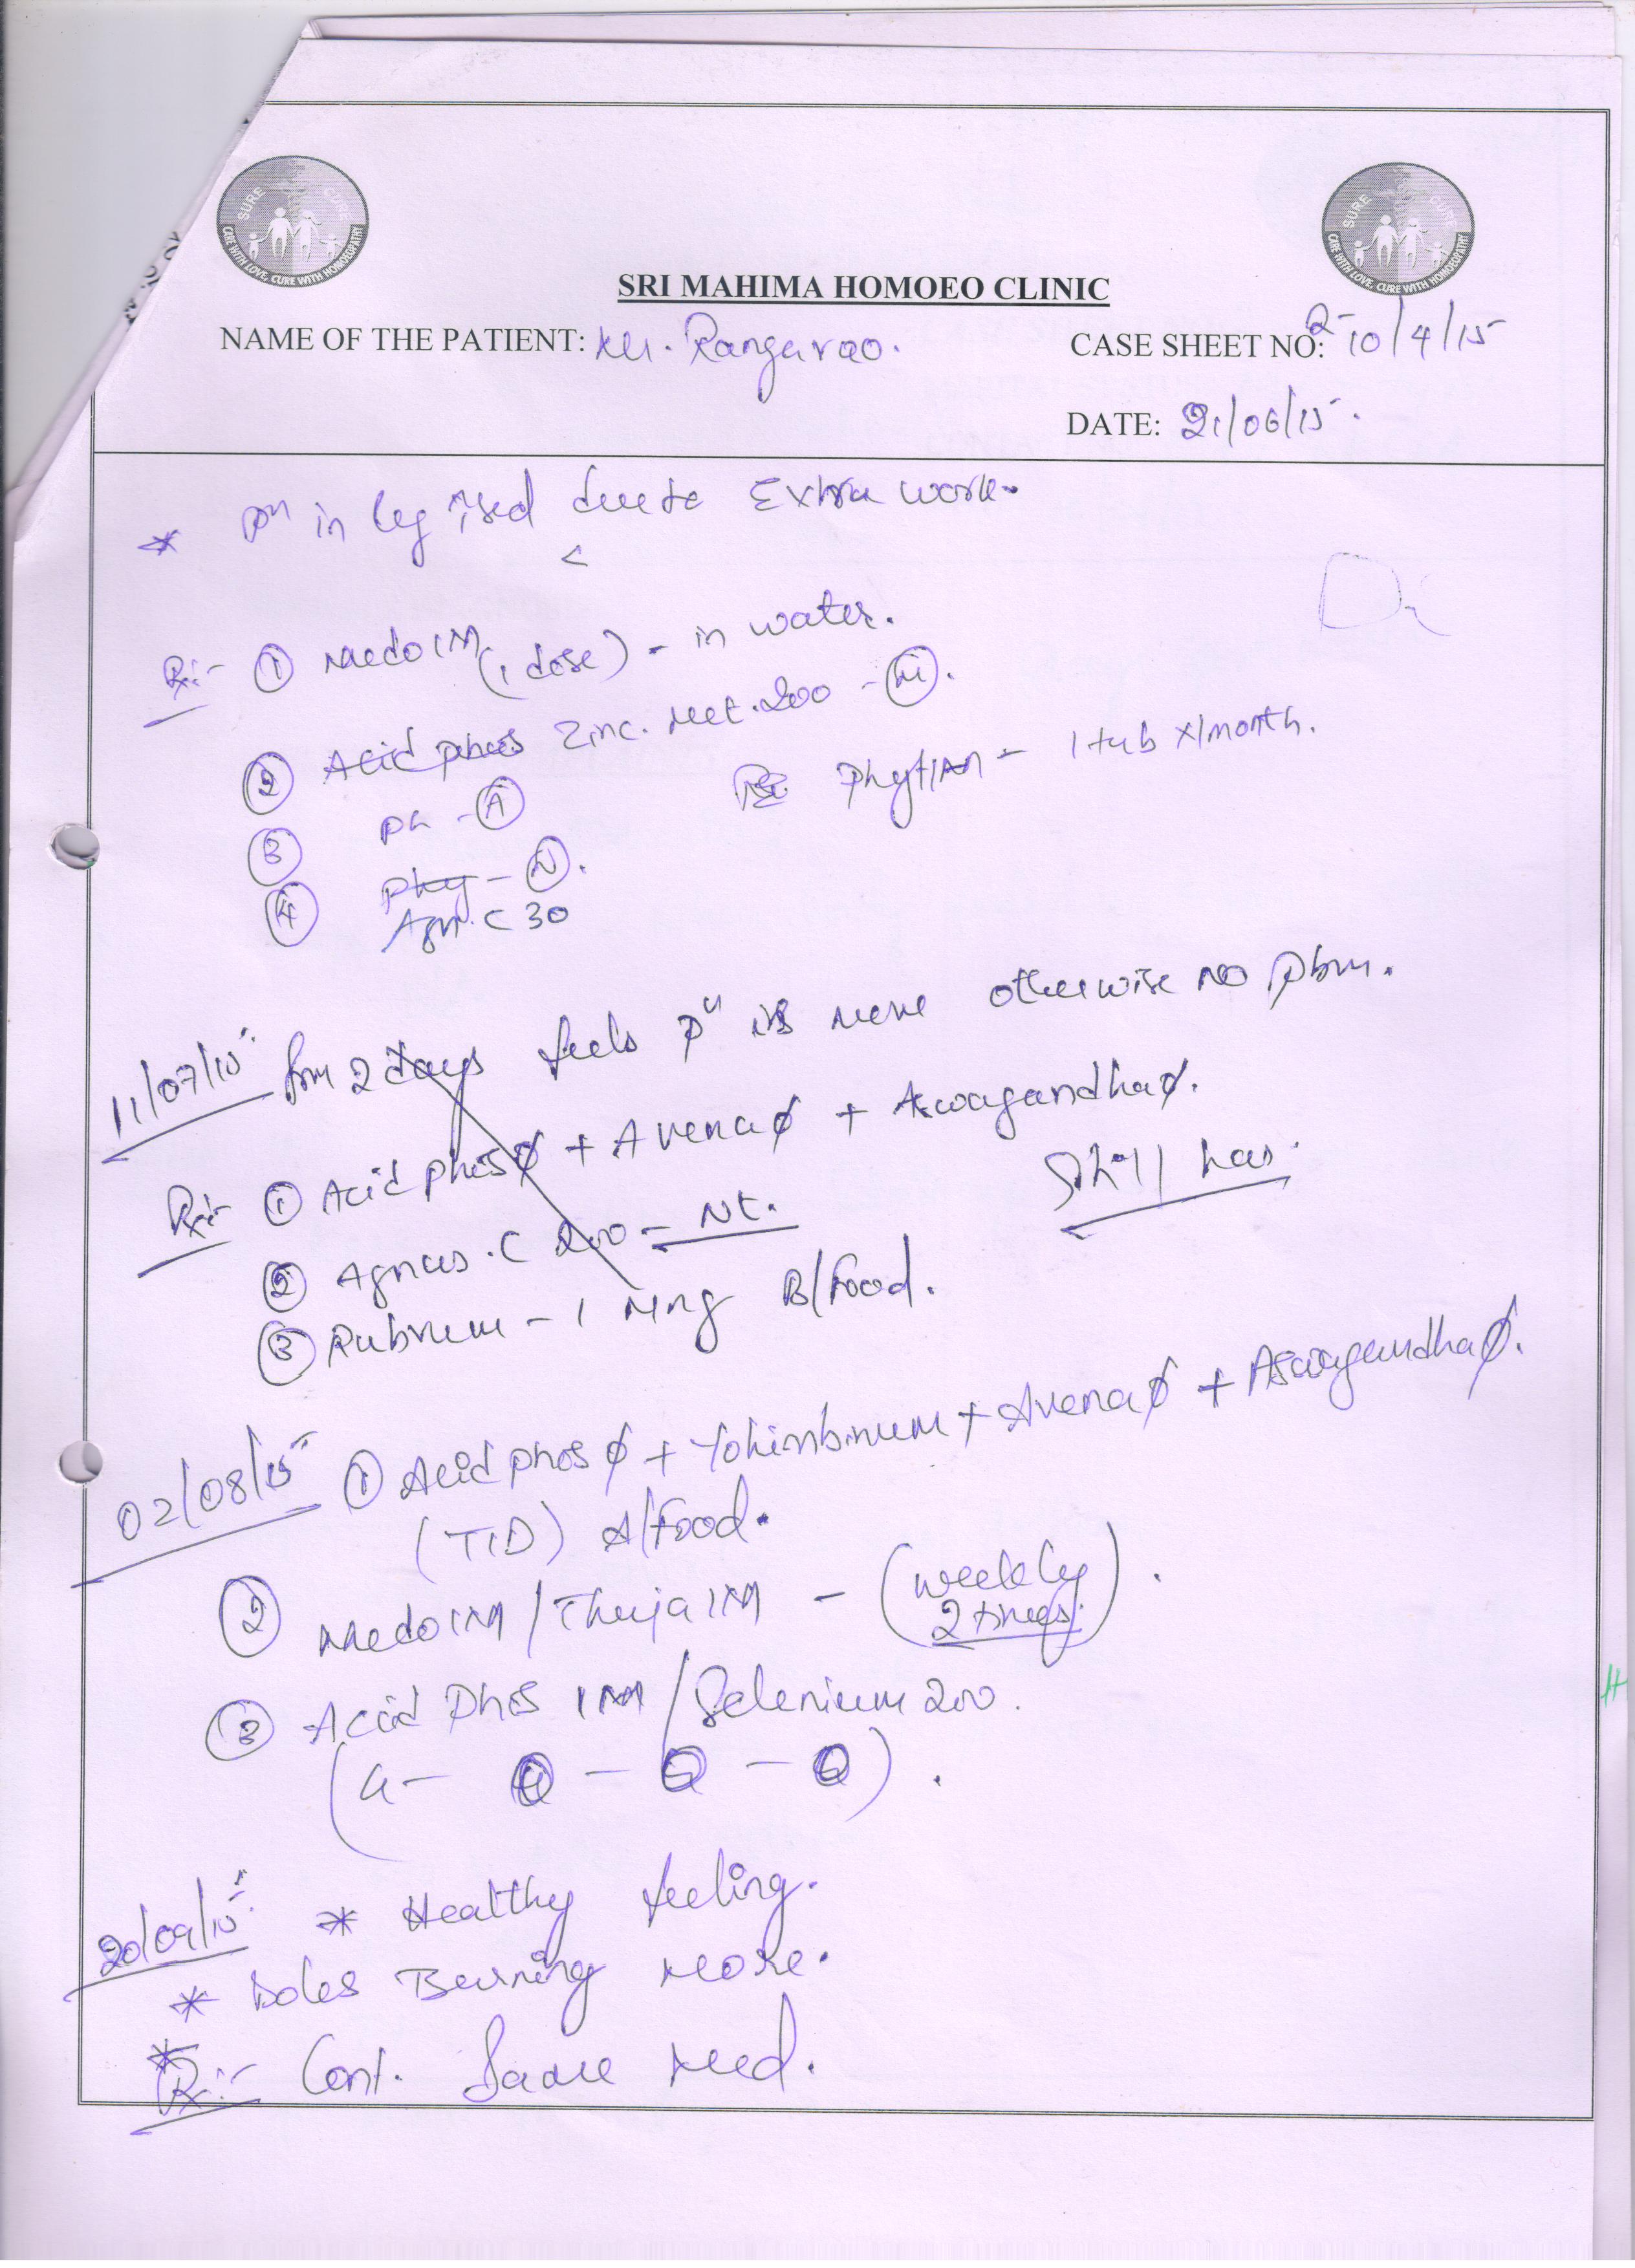 SURE CURE
CARE WITH LOVE, CURE WITH HOMOEOPATHY
SURE CURE
CARE WITH LOVE, CURE WITH HOMOEOPATHY
SRI MAHIMA HOMOEO CLINIC
NAME OF THE PATIENT: M. Rangarao.
CASE SHEET NO: 2-10/4/15
DATE: 21/06/15.
* Pn in leg ↑sed due to Extra work.
<
Rx:- ① Medo 1M (1 dose) - in water.
② Acid phos Zinc. Met. 200 - (M).
③ Ph - (A)
Phytum - 1 tub x 1 month.
④ Phy - (N).
Agn. C 30
11/07/15 from 2 days feels pn is more otherwise no pbm.
Rx:- ① Acid phos ϕ + Avena ϕ + Aswagandha ϕ.
Still has.
② Agnus. C 200 - Nt.
③ Rubrum - 1 Mng B/Food.
02/08/15 ① Acid phos ϕ + Yohimbinum + Avena ϕ + Aswagandha ϕ.
(TID) A/Food.
② Medo 1M / Thuja 1M - (weekly
2 times).
③ Acid Phos 1M / Selenium 200.
20/09/15 * Healthy feeling.
* Soles Burning more.
* Rx:- Cont. Same med.